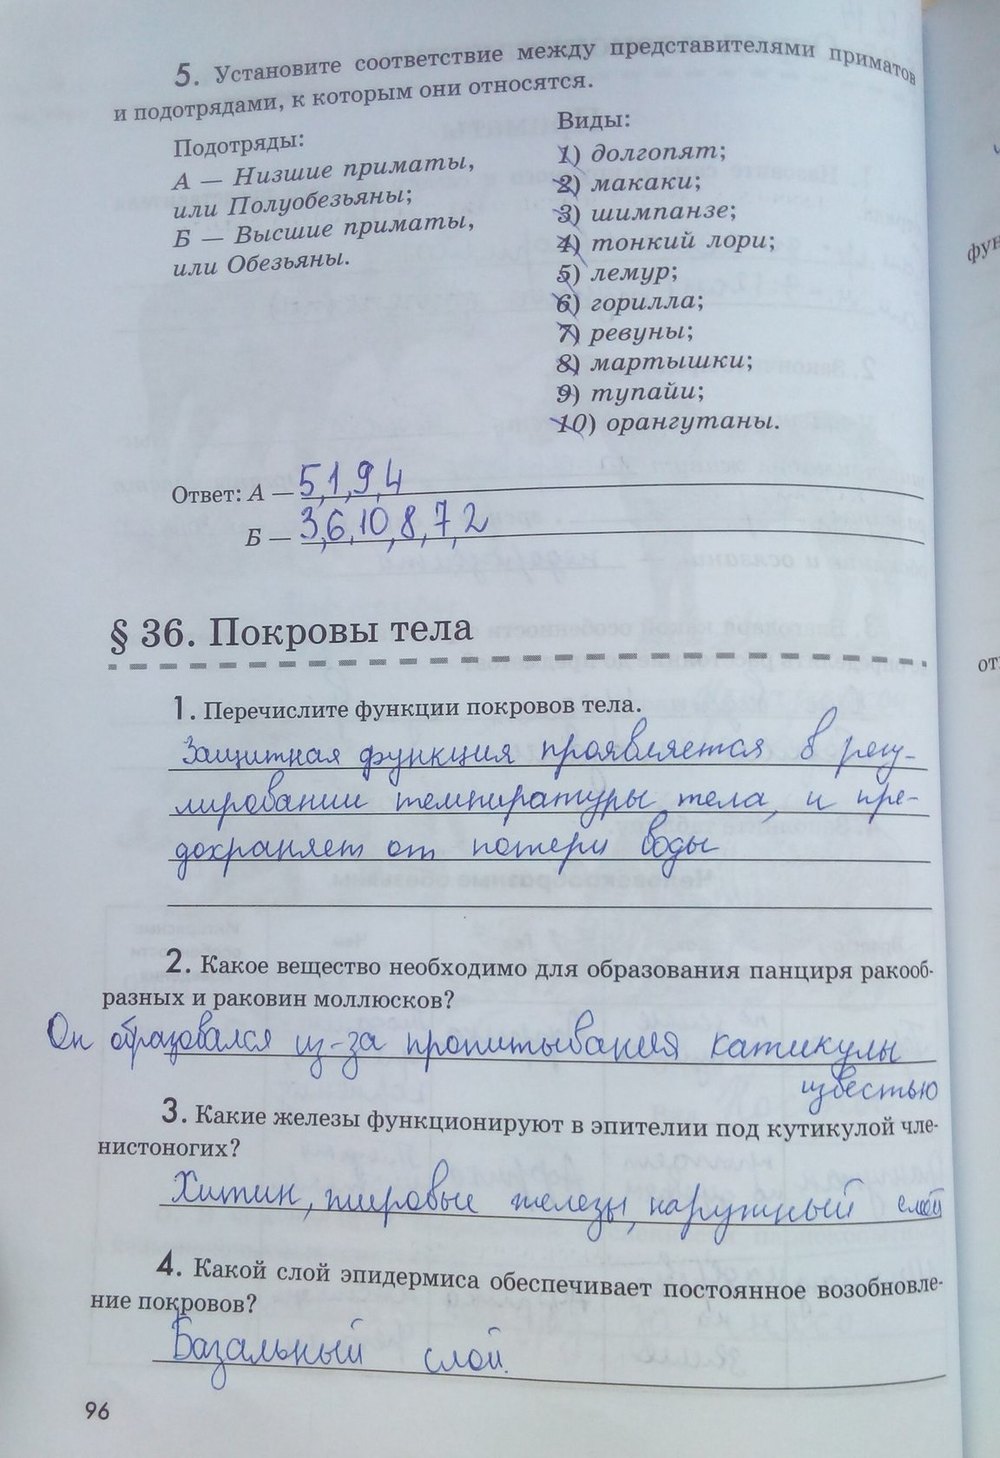 5. Установите соответствие между представителями приматов
и подотрядами, к которым они относятся.
Подотряды:
А — Низшие приматы,
или Полуобезьяны;
Б — Высшие приматы,
или Обезьяны.
Виды:
1) долгопят;
2) макаки;
3) шимпанзе;
4) тонкий лори;
5) лемур;
6) горилла;
7) ревуны;
8) мартышки;
9) тупайи;
10) орангутаны.
Ответ: А — 5,1,9,4
Б — 3,6,10,8,7,2
§ 36. Покровы тела
1. Перечислите функции покровов тела.
Защитная функция проявляется в регу-
лировании температуры тела, и пре-
дохраняет от потери воды
2. Какое вещество необходимо для образования панциря ракооб-
разных и раковин моллюсков?
Он образовался из-за пропитывания катикулы
известью
3. Какие железы функционируют в эпителии под кутикулой чле-
нистоногих?
Хитин, жировые железы, наружный слой
4. Какой слой эпидермиса обеспечивает постоянное возобновле-
ние покровов?
Базальный слой.
96
фун
от